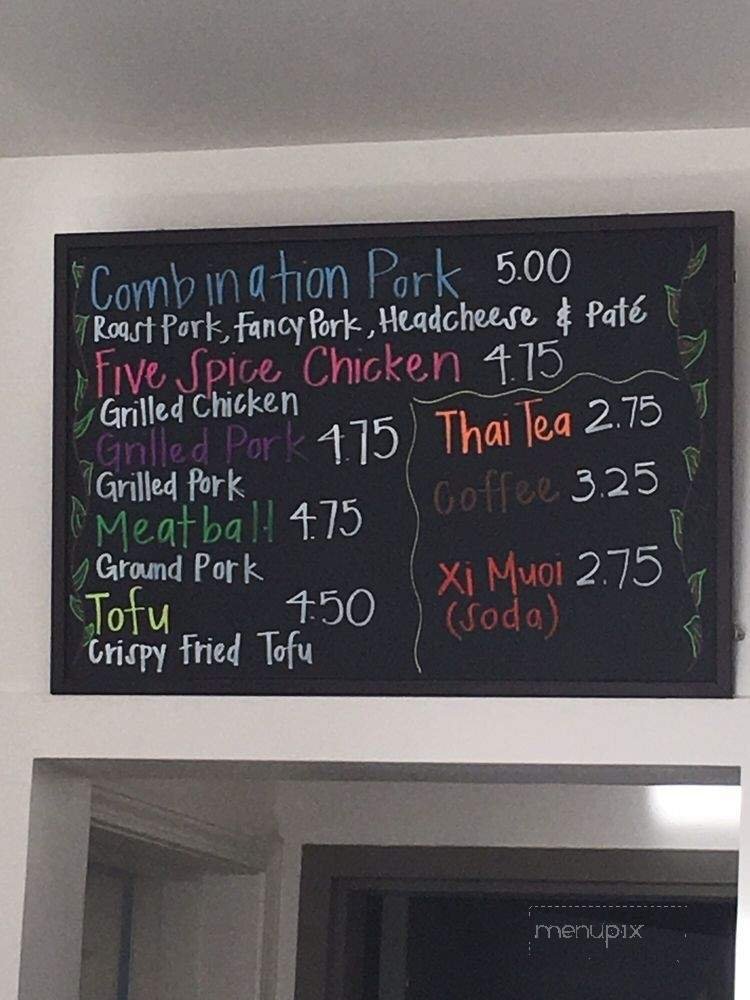 Combination Pork 5.00
Roast Pork, Fancy Pork, Headcheese & Paté
Five Spice Chicken 4.75
Grilled Chicken
Grilled Pork 4.75
Grilled Pork
Meatball 4.75
Ground Pork
Tofu 4.50
Crispy Fried Tofu
Thai Tea 2.75
Coffee 3.25
Xi Muoi 2.75
(Soda)
menupix